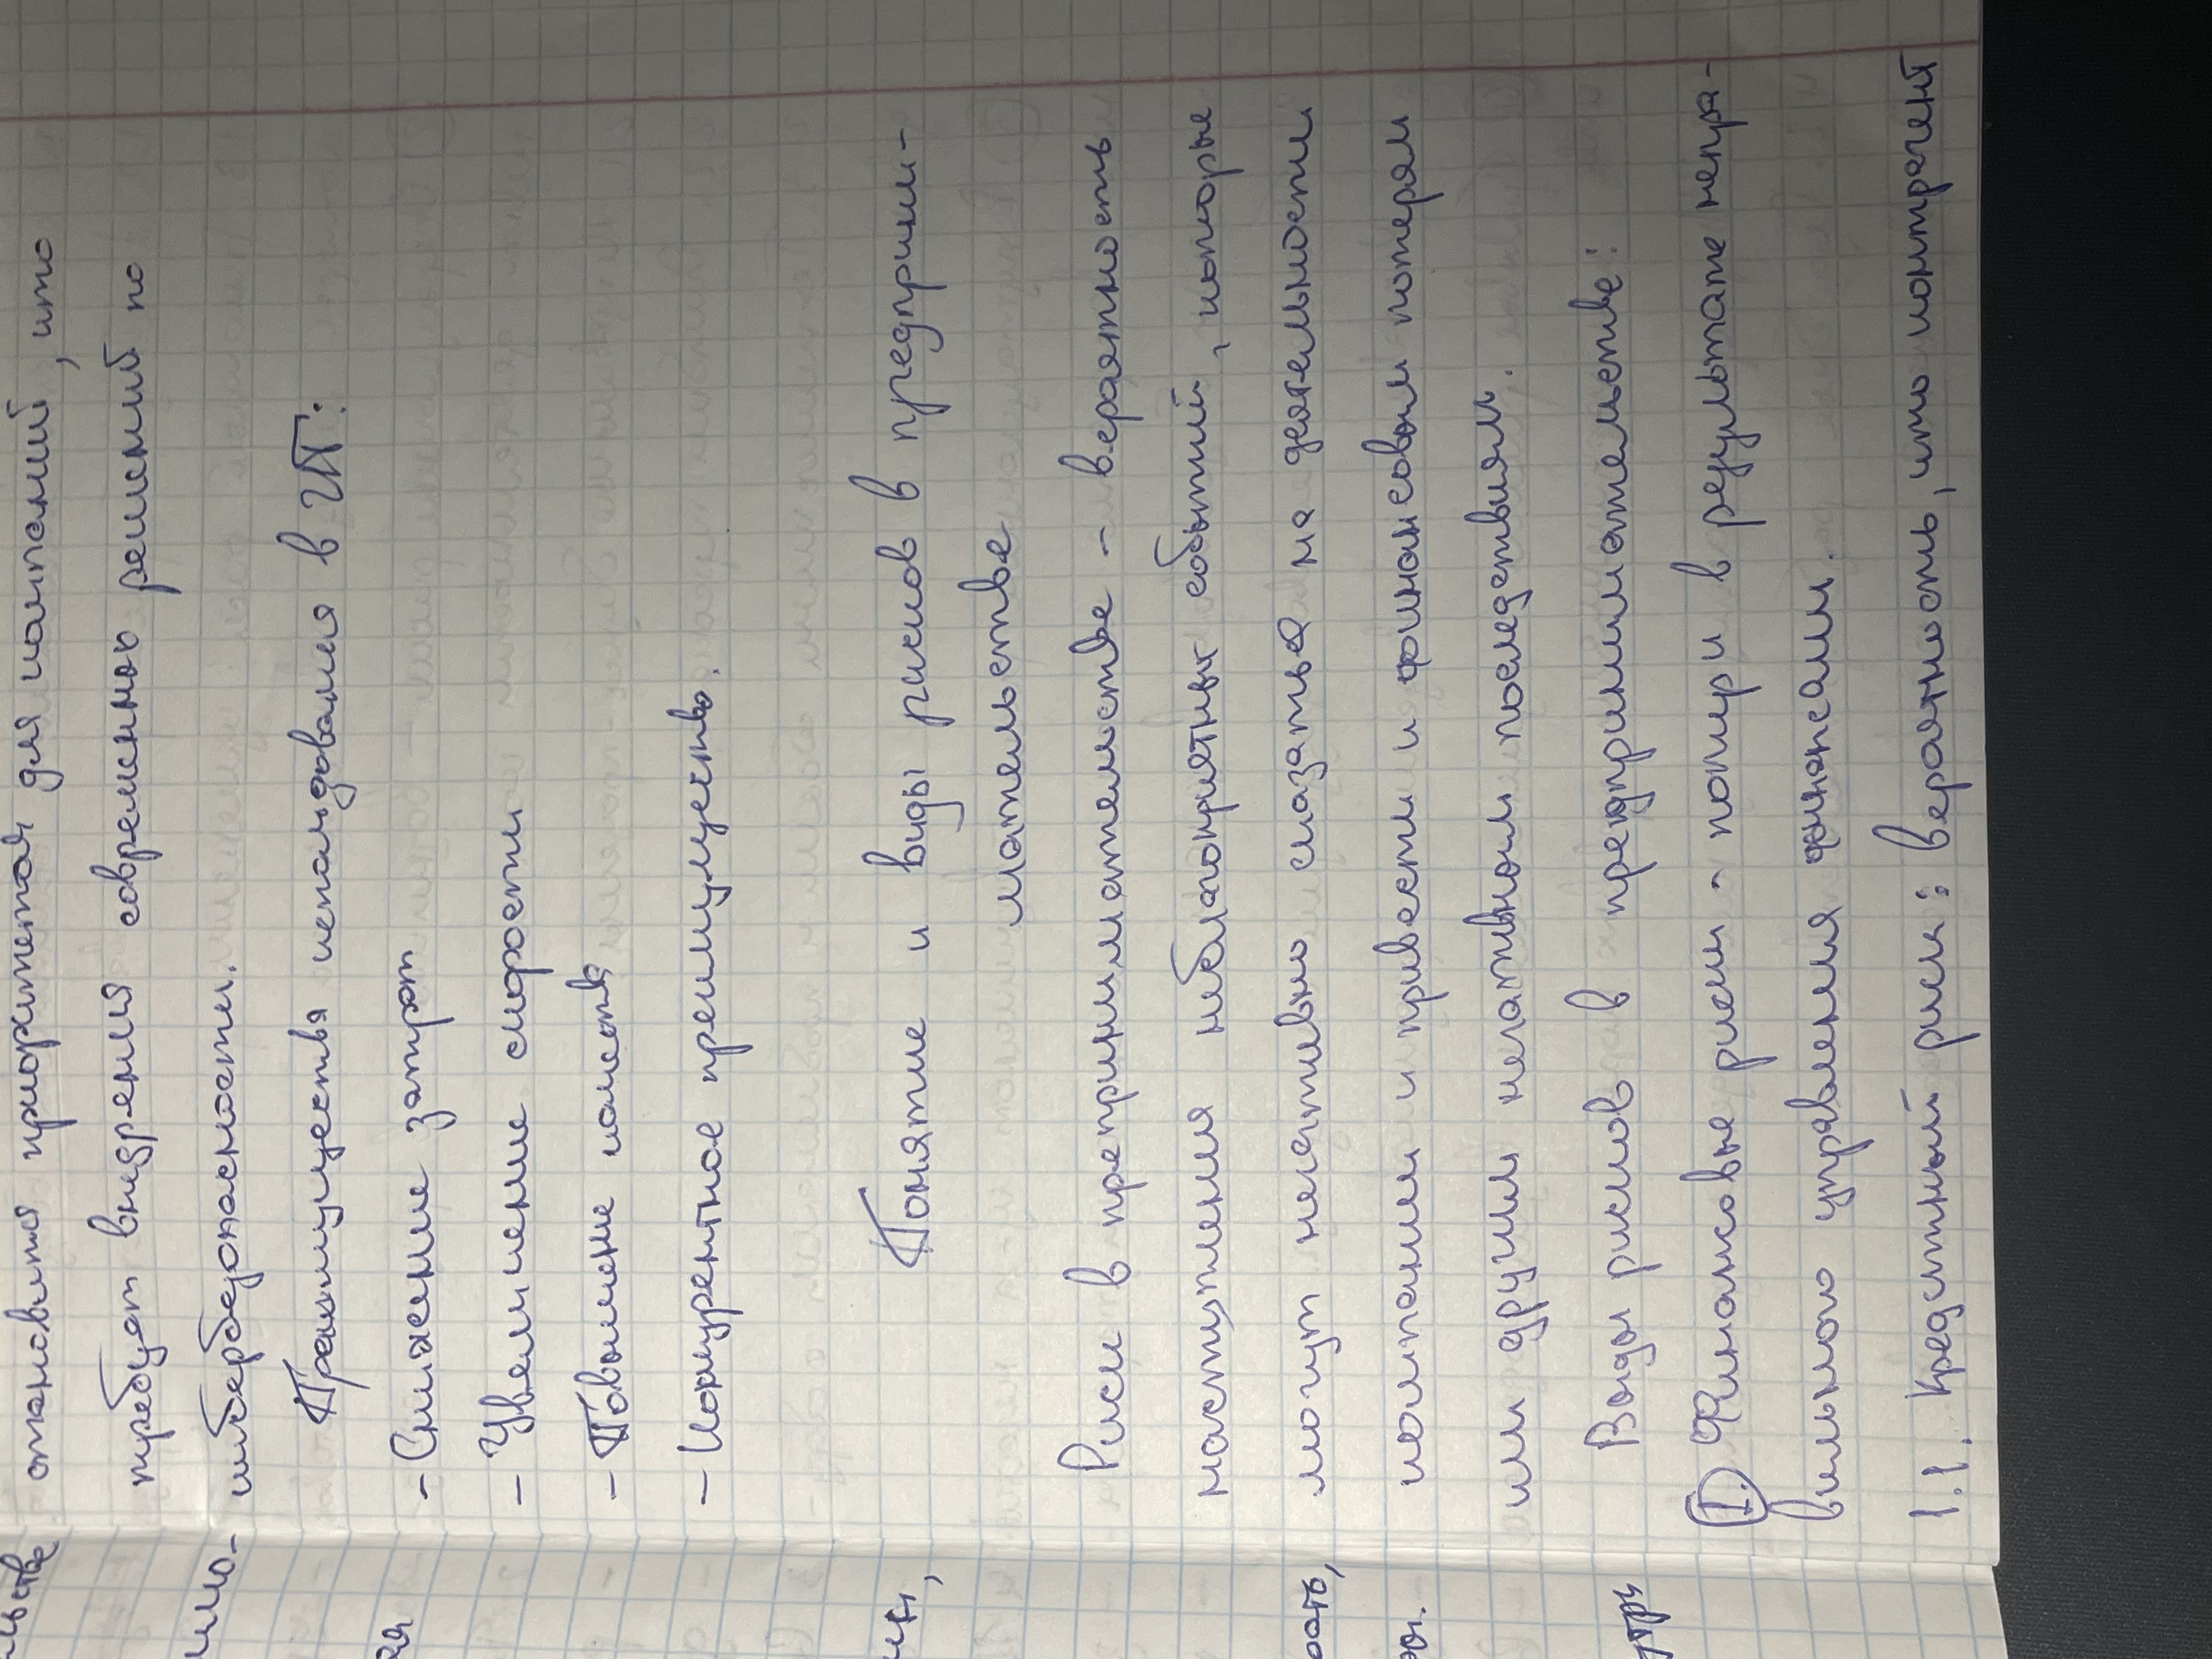 становится приоритетом для компаний, что
требует внедрения современных решений по
кибербезопасности.
Преимущества использования в ИП:
- Снижение затрат
- Увеличение скорости
- Повышение качеств
- Конкурентное преимущество.
Понятие и виды рисков в предприни-
мательстве
Риски в препринимательстве - вероятность
наступления неблагоприятных событий, которые
могут негативно сказаться на деятельности
компании и привести к финансовым потерям
или другим негативным последствиям.
Виды рисков в предпринимательстве:
1. Финансовые риски - потери в результате непра-
вильного управления финансами.
1.1. Кредитный риск: вероятность, что контрагент